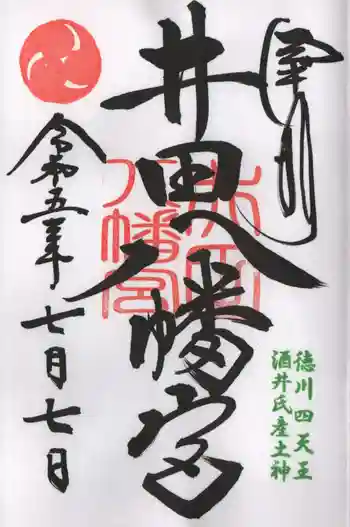 奉拝
井田八幡宮
井田八幡宮
徳川四天王
酒井氏産土神
令和五年
七月七日